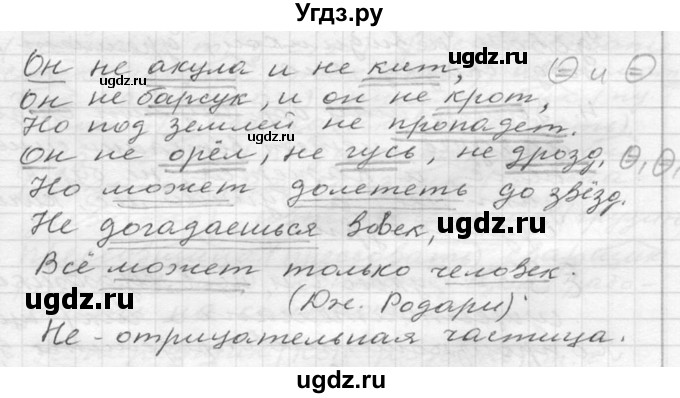 Угдз.ру
Он не акула и не кит,
Он не барсук, и он не крот,
Но под землей не пропадет.
Он не орёл, не гусь, не дрозд,
Но может долететь до звёзд.
Не догадаешься вовек,
Всё может только человек.
(Дж. Родари)
Не - отрицательная частица.
ugdz.ru
ugdz.ru
ugdz.ru
ugdz.ru
ugdz.ru
ugdz.ru
ugdz.ru
ugdz.ru